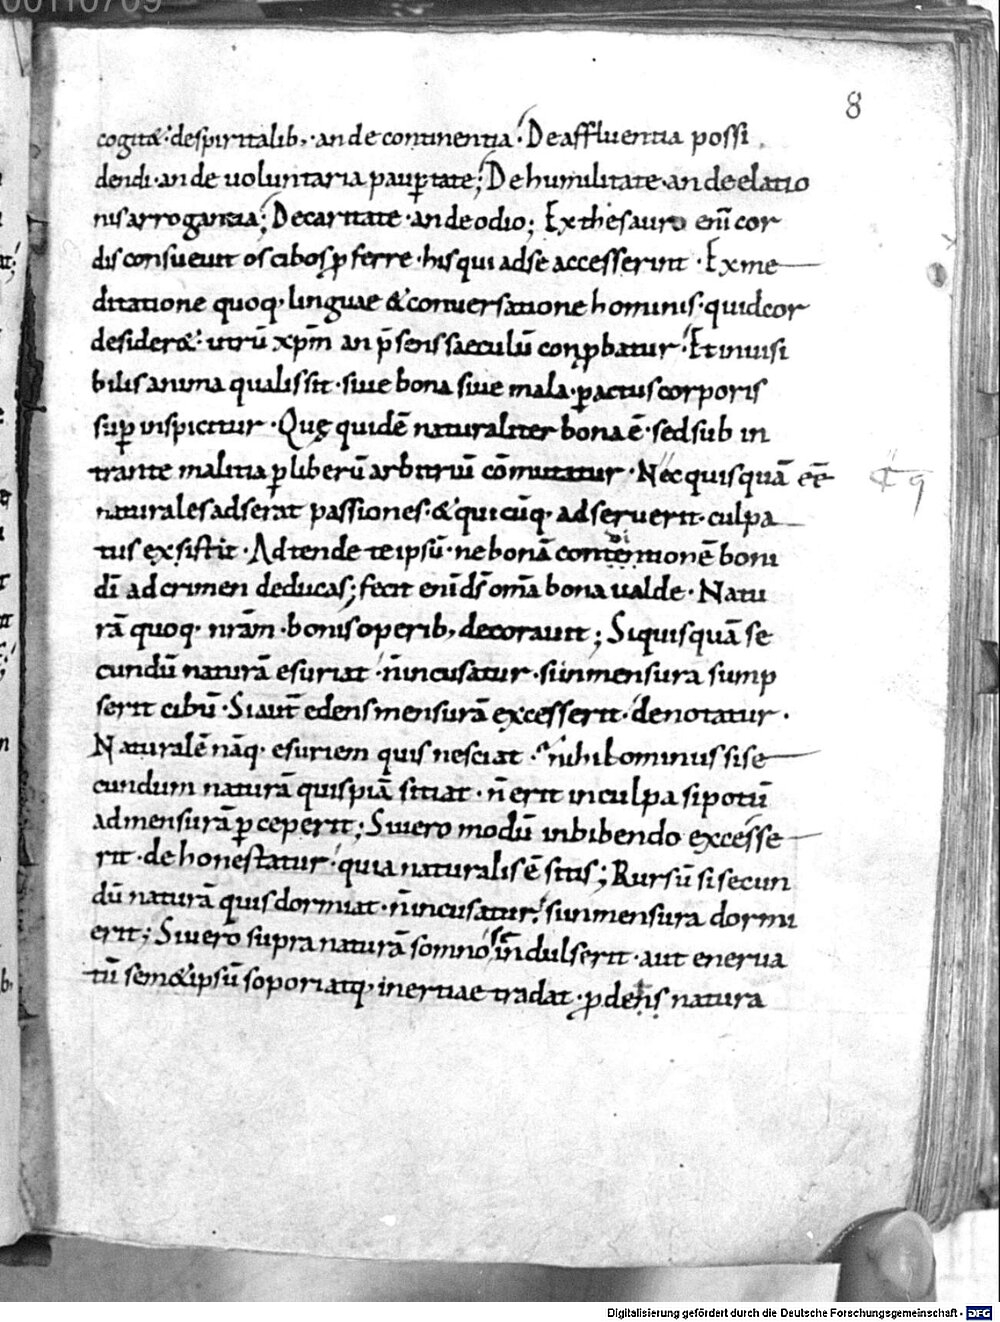 8
cogit&·despiritalib;·an de continentia·Deaffluentia possi
dendi·an de uoluntaria paup̄tate; De humilitate·an de elatio
nis arrogantia; Decaritate·an de odio; Ex thesauro eni̅ cor
dis consueuit os cibos p̄ferre·his qui ad se accesserint·Ex me
ditatione quoq· linguae & conuersatione hominis·quid cor
desider&·utrū xp̄m an p̄sens saeculū conp̱batur·Et inuisi
bilis anima qualis sit·siue bona siue mala·p̱ actus corporis
sup̱ inspicitur·Quę quidē naturaliter bona ē·sed sub in
trante malitia p̱ liberū arbitriū cōmutatur·Nec quisquā eē
naturales adserat passiones·& quicūq· adseruerit·culpa
tus exsistit·Adtende te ipsū·ne bonā contentionē boni
dī ad crimen deducas; fecit eni̅ ds̄ om̄a bona ualde·Natu
rā quoq· nrā̄m·bonis operib; decorauit; Si quisquā se
cundū naturā esuriat·n̄ incusatur·si inmensura sump
serit cibū·Si aut̄ edens mensurā excesserit·denotatur·
Naturalē nāq· esuriem quis nesciat·nihilominus si se
cundum naturā quispiā sitiat·n̄ erit in culpa si potū
ad mensurā p̱ceperit; Si uero modū in bibendo excesse
rit·dehonestatur·quia naturalis ē sitis; Rursū si secun
dū naturā quis dormiat·n̄ incusatur·si inmensura dormi
erit; Si uero supra naturā somno indulserit·aut enerua
tū sem& ipsū soporiatq· inertiae tradat·p̱dens natura
Digitalisierung gefördert durch die Deutsche Forschungsgemeinschaft - DFG